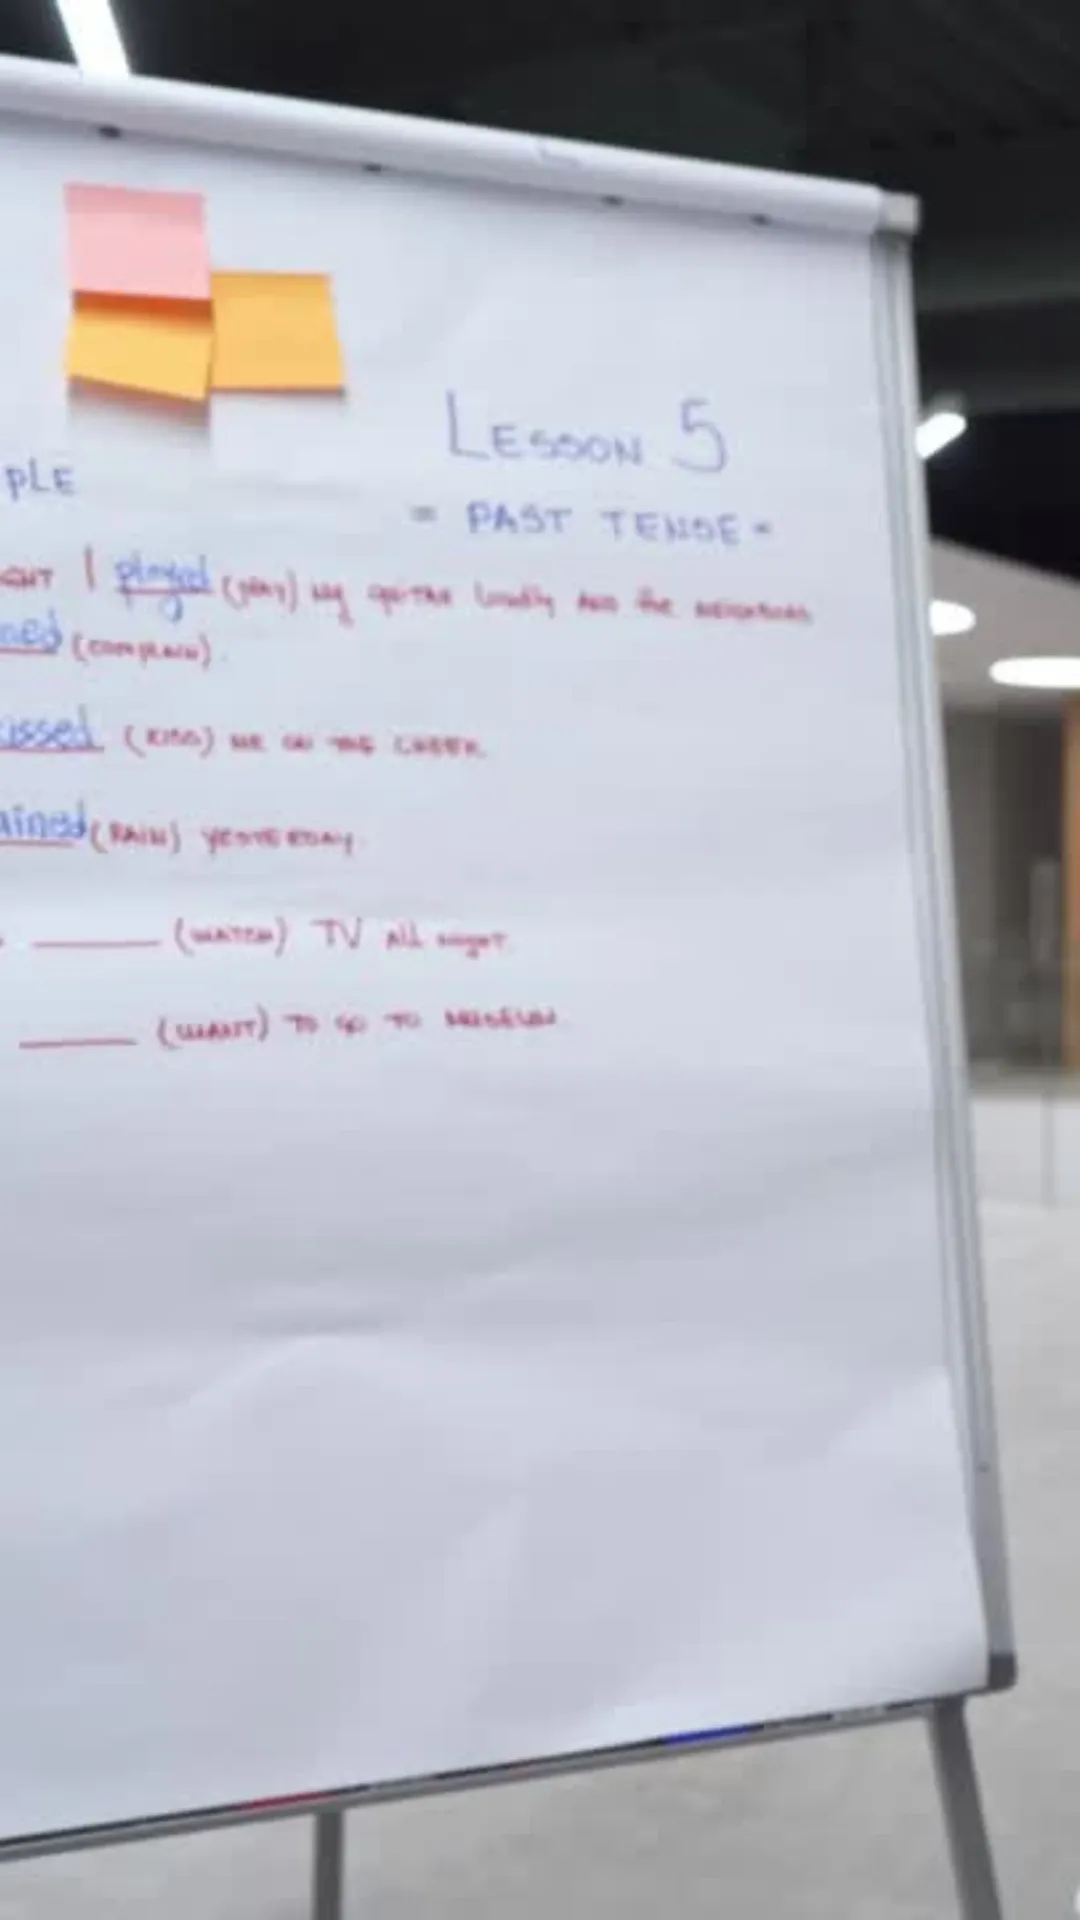 LESSON 5
PLE
= PAST TENSE =
GHT I played (PLAY) My guitar loudly AND the NEIGHBORS
ned (COMPLAIN).
issed (KISS) ME ON THE CHEEK
ained (RAIN) YESTERDAY
(WATCH) TV All night
(WANT) TO GO TO